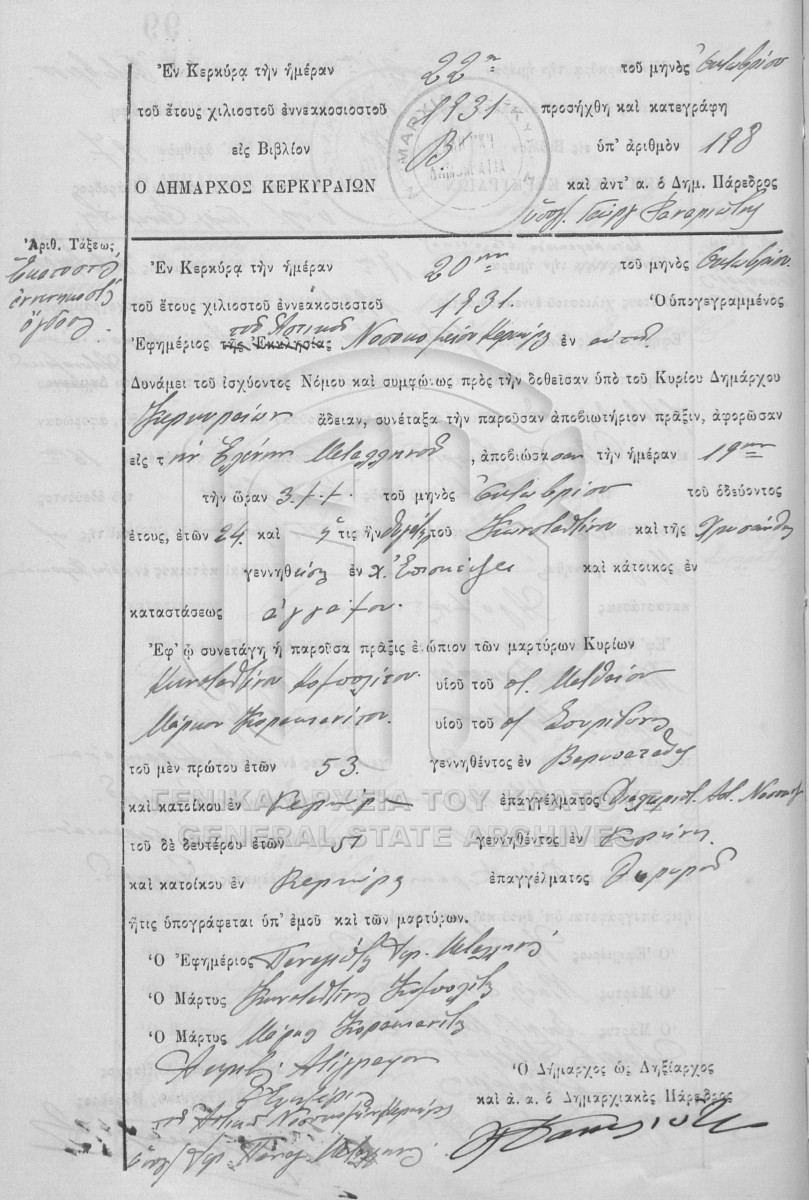 Ἐν Κερκύρᾳ τὴν ἡμέραν 22αν τοῦ μηνὸς Ὀκτωβρίου
τοῦ ἔτους χιλιοστοῦ ἐννεακοσιοστοῦ 1931 προσήχθη καὶ κατεγράφη
εἰς Βιβλίον Β ὑπ' ἀριθμὸν 198
Ο ΔΗΜΑΡΧΟΣ ΚΕΡΚΥΡΑΙΩΝ καὶ ἀντ' α. ὁ Δημ. Πάρεδρος
Ἀριθ. Τάξεως
Ἑκατοστὴ
ἐνενηκοστὴ
ὀγδόη
Ἐν Κερκύρᾳ τὴν ἡμέραν 20ην τοῦ μηνὸς Ὀκτωβρίου
τοῦ ἔτους χιλιοστοῦ ἐννεακοσιοστοῦ 1931. Ὁ ὑπογεγραμμένος
τοῦ Ἀστικοῦ
Ἐφημέριος τῆς Ἐκκλησίας Νοσοκομείου Κερκύρας ἐν
Δυνάμει τοῦ ἰσχύοντος Νόμου καὶ συμφώνως πρὸς τὴν δοθεῖσαν ὑπὸ τοῦ Κυρίου Δημάρχου
Κερκυραίων ἄδειαν, συνέταξα τὴν παροῦσαν ἀποβιωτήριον πρᾶξιν, ἀφορῶσαν
εἰς τὴν Ἑλένην Μεταλληνοῦ, ἀποβιώσασαν τὴν ἡμέραν 19ην
τὴν ὥραν 3 τοῦ μηνὸς Ὀκτωβρίου τοῦ ὁδεύοντος
ἔτους, ἐτῶν 24 καὶ ἥτις ἦν θυγάτηρ τοῦ Κωνσταντίνου καὶ τῆς Χρυσάνθης
γεννηθεῖσα ἐν χ. Ἐπισκέψει καὶ κάτοικος ἐν
καταστάσεως ἀγάμου.
Ἐφ' ᾧ συνετάγη ἡ παροῦσα πρᾶξις ἐνώπιον τῶν μαρτύρων Κυρίων
Κωνσταντίνου υἱοῦ τοῦ Ματθαίου
Μάρκου Κορακιανίτου. υἱοῦ τοῦ Σπυρίδωνος
τοῦ μὲν πρώτου ἐτῶν 53. γεννηθέντος ἐν
καὶ κατοίκου ἐν Κερκύρᾳ ἐπαγγέλματος Διαχειριστ. Ἀστ. Νοσοκ.
τοῦ δὲ δευτέρου ἐτῶν 51 γεννηθέντος ἐν
καὶ κατοίκου ἐν Κερκύρᾳ ἐπαγγέλματος
ἥτις ὑπογράφεται ὑπ' ἐμοῦ καὶ τῶν μαρτύρων.
Ὁ Ἐφημέριος Παναγιώτης Μεταλληνός
Ὁ Μάρτυς Κωνσταντῖνος
Ὁ Μάρτυς Μάρκος Κορακιανίτης
Ἀκριβὲς Ἀντίγραφον
Ὁ Δήμαρχος ὡς Ληξίαρχος
Ὁ Ἐφημέριος
καὶ ἀ. α. ὁ Δημαρχιακὸς Πάρεδρος
τοῦ Ἀστικοῦ Νοσοκομείου Κερκύρας
ΓΕΝΙΚΑ ΑΡΧΕΙΑ ΤΟΥ ΚΡΑΤΟΥΣ
GENERAL STATE ARCHIVES